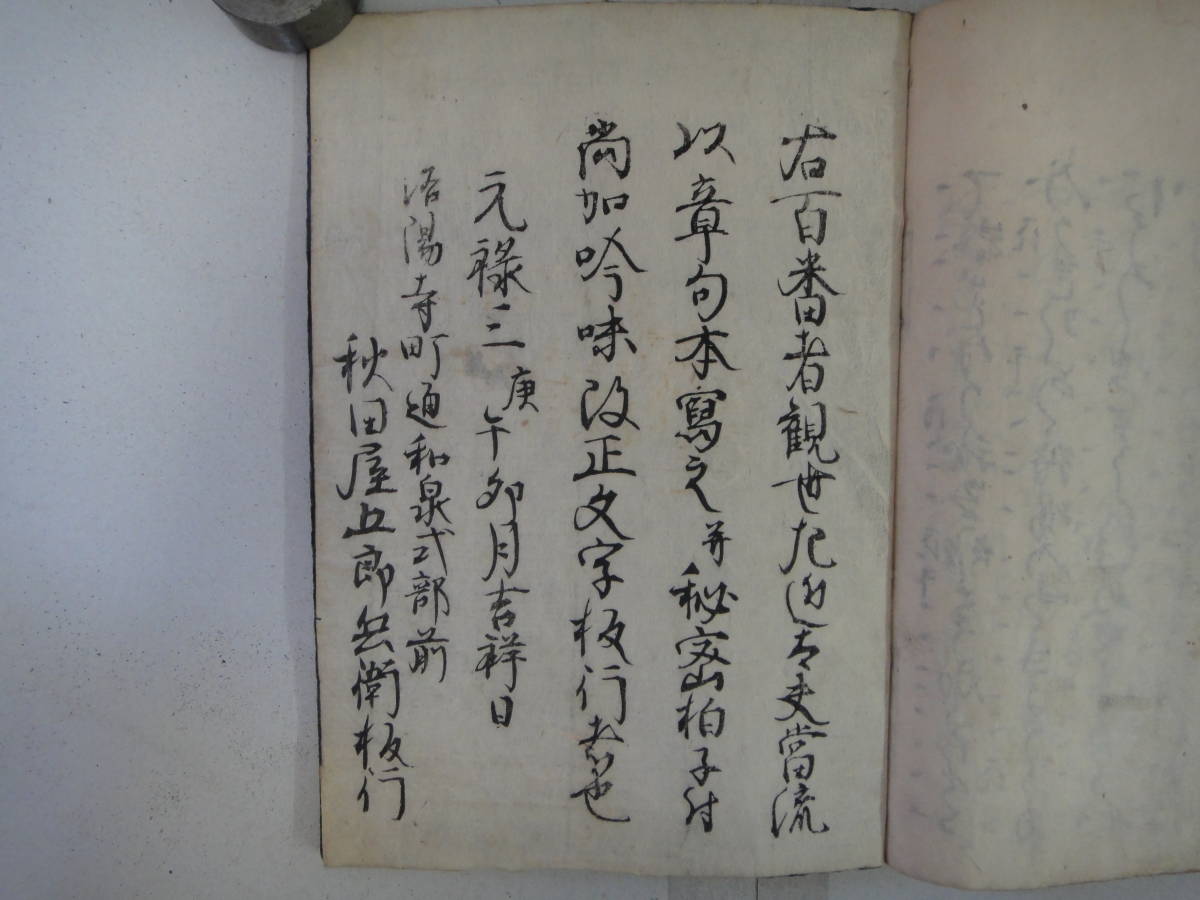 右百番者観世左近太夫當流
以章句本寫之并秘密柏子付
尚加吟味改正文字板行者也
元禄三庚午卯月吉祥日
洛陽寺町通和泉式部前
秋田屋五郎兵衛板行